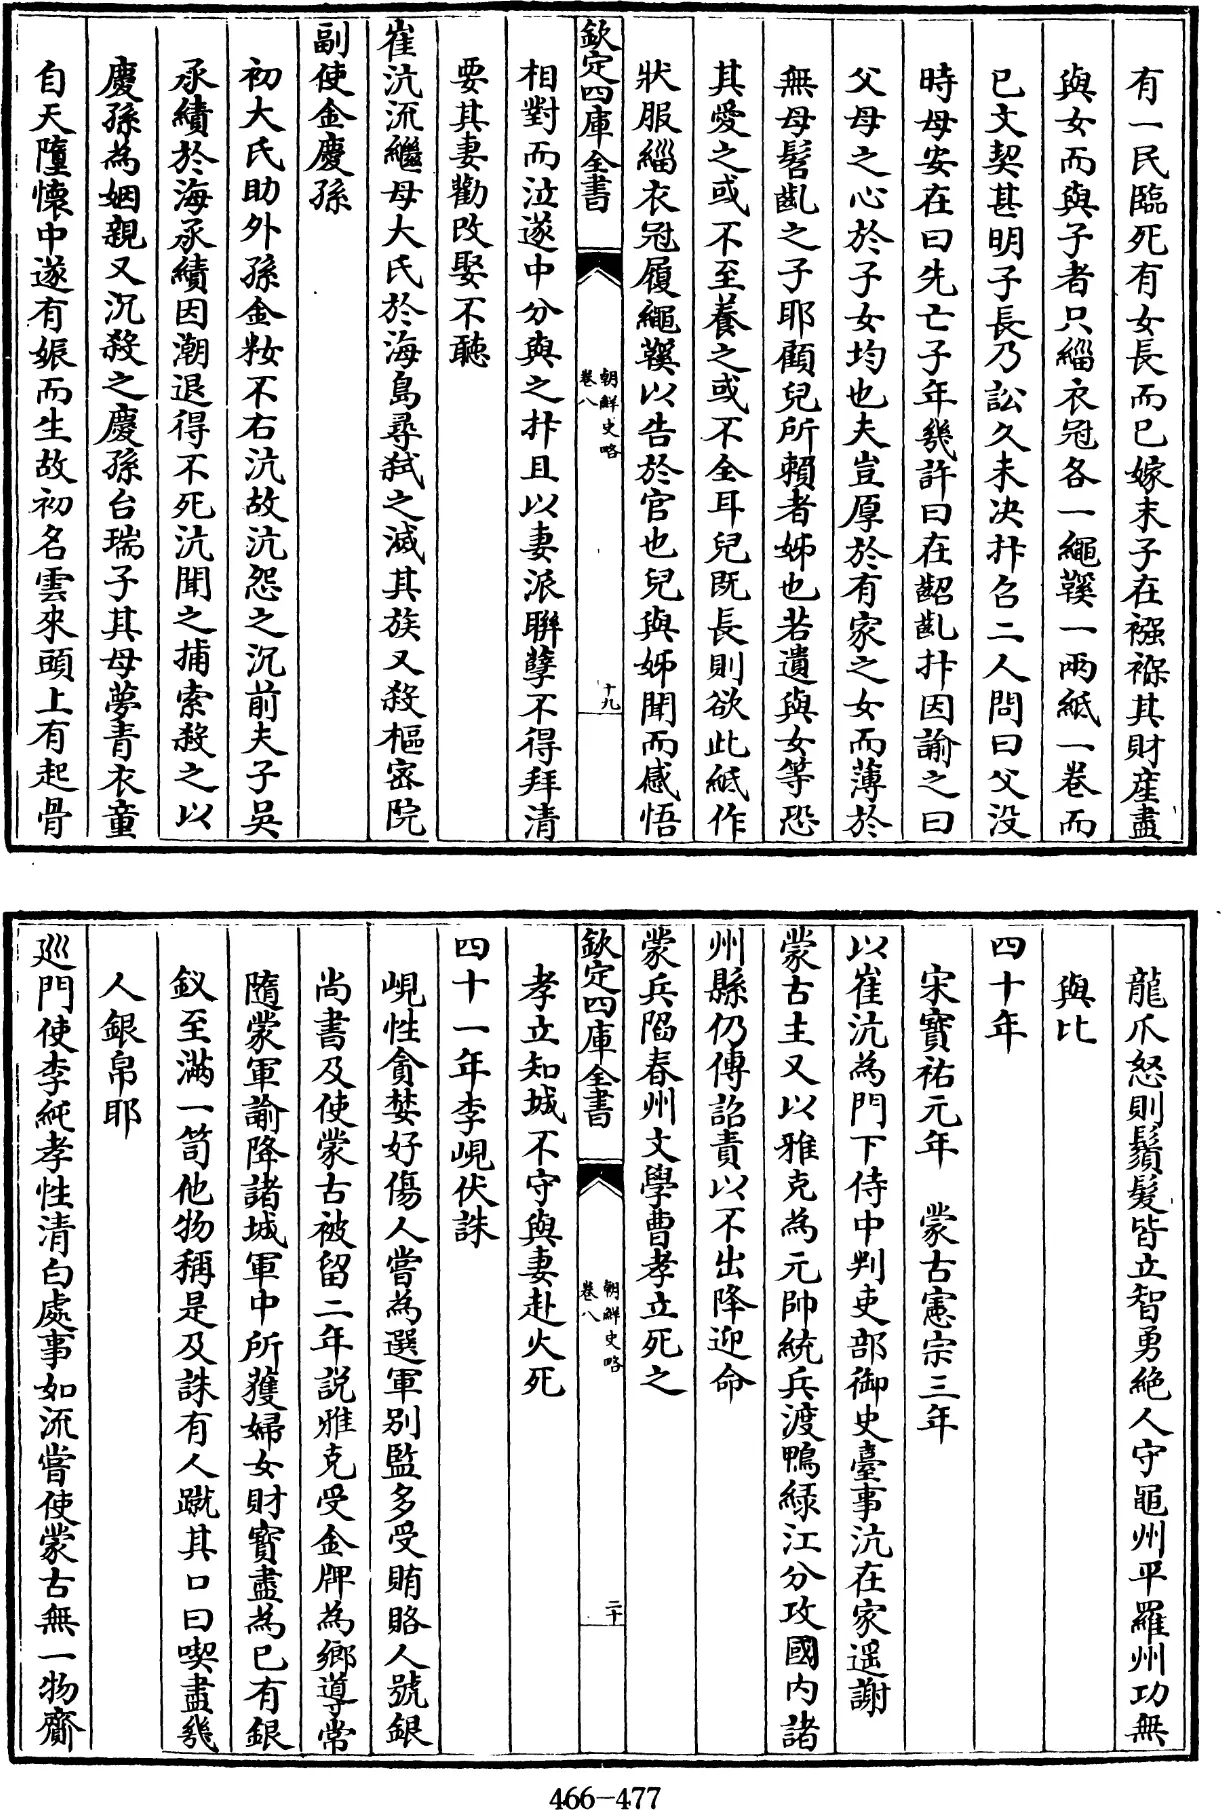 有一民臨死有女長而已嫁末子在襁褓其財産盡
與女而與子者只緇衣冠各一繩鞵一兩紙一卷而
已文契甚明子長乃訟久未决抃召二人問曰父没
時母安在曰先亡子年幾許曰在齠齔抃因諭之曰
父母之心於子女均也夫豈厚於有家之女而薄於
無母髫齔之子耶顧兒所賴者姊也若遺與女等恐
其愛之或不至養之或不全耳兒既長則欲此紙作
狀服緇衣冠履繩鞵以告於官也兒與姊聞而感悟
欽定四庫全書
朝鮮史略
卷八
十九
相對而泣遂中分與之抃且以妻派聯孽不得拜清
要其妻勸改娶不聽
崔沆流繼母大氏於海島尋弑之滅其族又殺樞密院
副使金慶孫
初大氏助外孫金敉不右沆故沆怨之沉前夫子吳
承績於海承績因潮退得不死沆聞之捕索殺之以
慶孫為姻親又沉殺之慶孫台瑞子其母夢青衣童
自天墮懷中遂有娠而生故初名雲來頭上有起骨
龍爪怒則鬚髮皆立智勇絶人守龜州平羅州功無
與比
四十年
宋寶祐元年 蒙古憲宗三年
以崔沆為門下侍中判吏部御史臺事沆在家遥謝
蒙古主又以雅克為元帥統兵渡鴨緑江分攻國内諸
州縣仍傳詔責以不出降迎命
蒙兵陷春州文學曹孝立死之
欽定四庫全書
朝鮮史略
卷八
二十
孝立知城不守與妻赴火死
四十一年李峴伏誅
峴性貪婪好傷人嘗為選軍别監多受賄賂人號銀
尚書及使蒙古被留二年説雅克受金牌為鄉導常
隨蒙軍諭降諸城軍中所獲婦女財寳盡為已有銀
釵至滿一笥他物稱是及誅有人蹴其口曰喫盡幾
人銀帛耶
巡門使李純孝性清白處事如流嘗使蒙古無一物齎
466-477